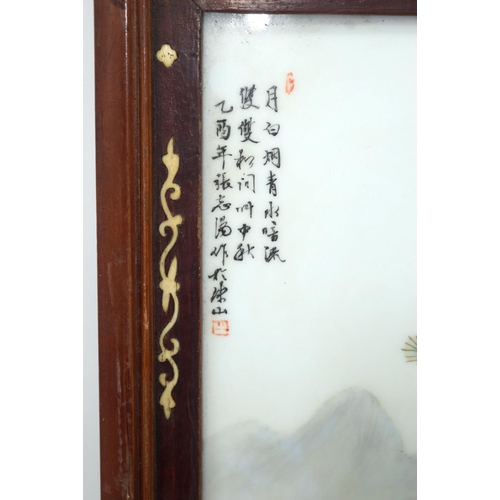 月白烟青水暗流
雙雙相问洲中秋
乙酉年張志湯作於珠山